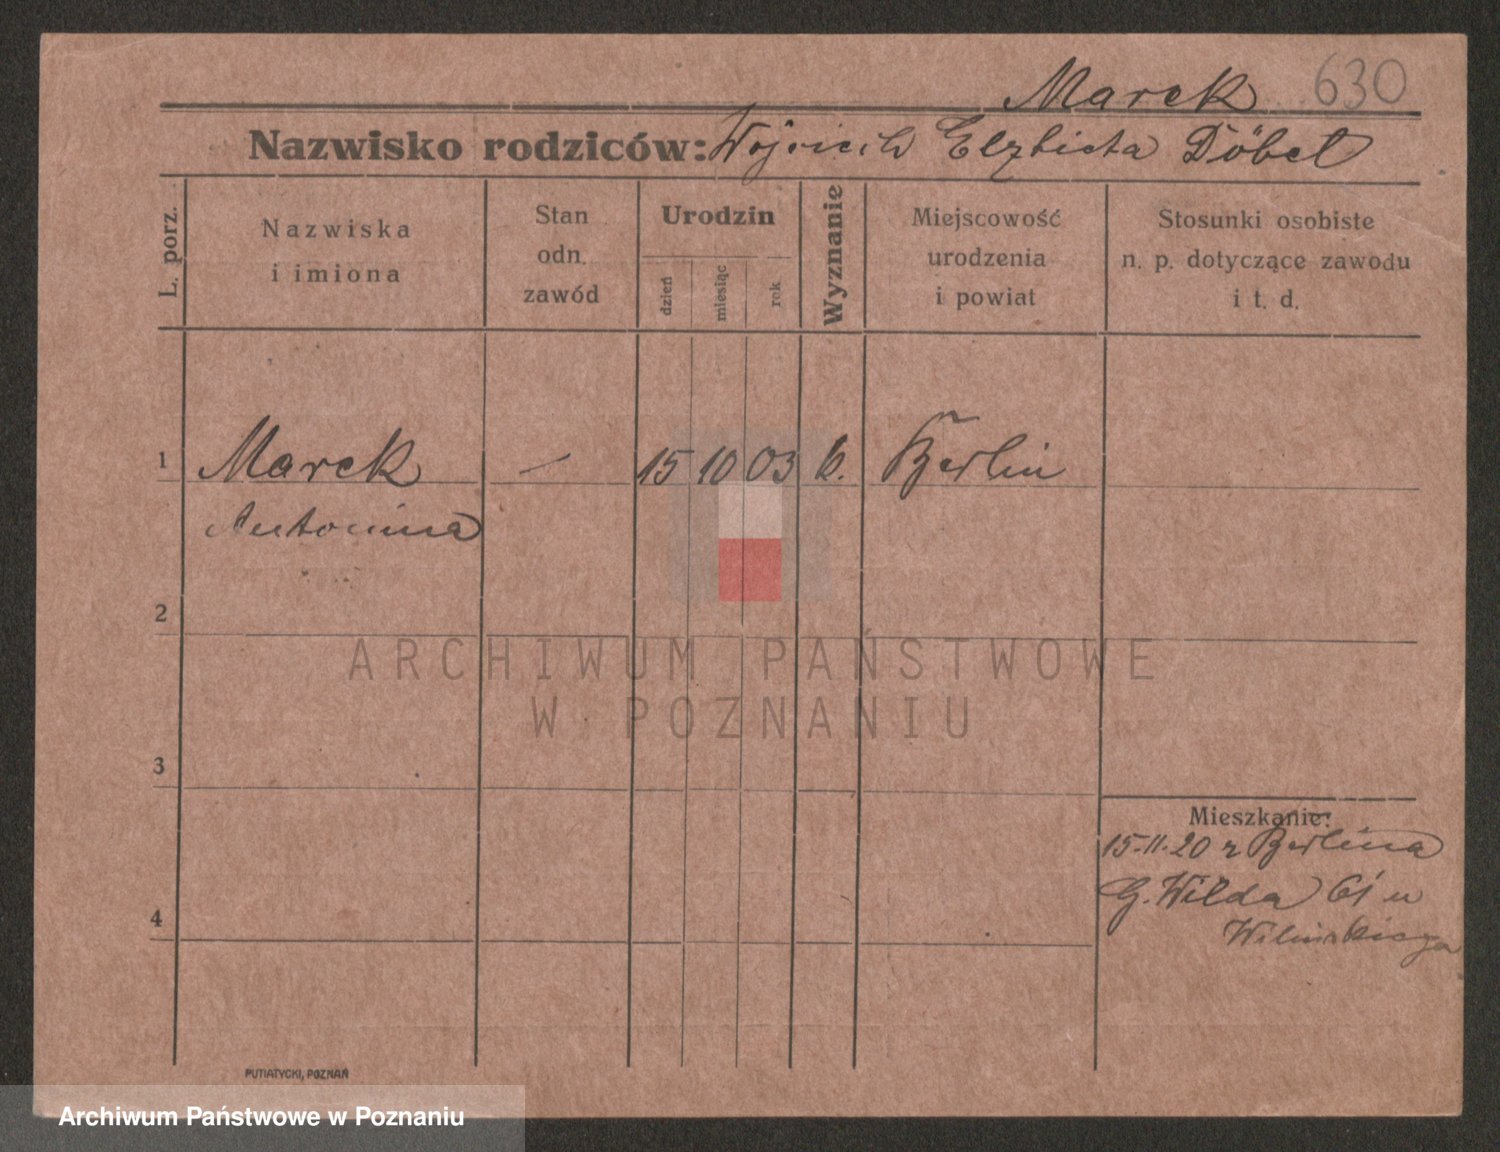 Marek 630
Nazwisko rodziców: Wojciech Elzbieta Döbel
L. porz.
Nazwiska
i imiona
Stan
odn.
zawód
Urodzin
dzień
miesiąc
rok
Wyznanie
Miejscowość
urodzenia
i powiat
Stosunki osobiste
n. p. dotyczące zawodu
i t. d.
1 Marek — 15 10 03 k. Berlin
Antonina
2
ARCHIWUM PAŃSTWOWE
W POZNANIU
3
Mieszkanie:
15.11.20 z Berlina
4
G. Wilda 61 u
Wilińskiego
PUTIATYCKI, POZNAŃ
Archiwum Państwowe w Poznaniu